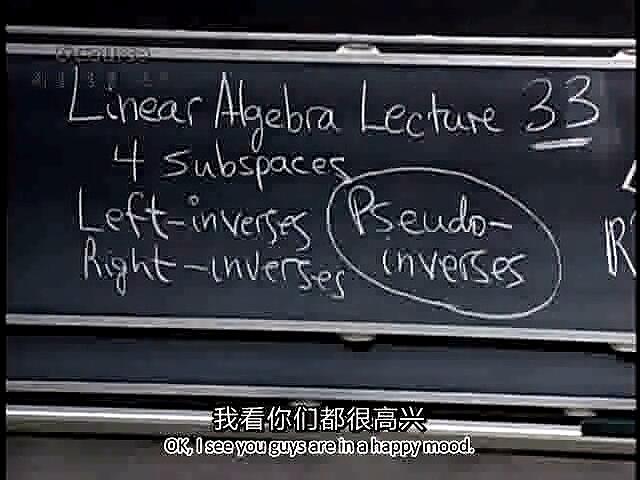 Linear Algebra Lecture 33
4 subspaces
Left-inverses
Right-inverses
Pseudo-
inverses
R
我看你们都很高兴
OK, I see you guys are in a happy mood.